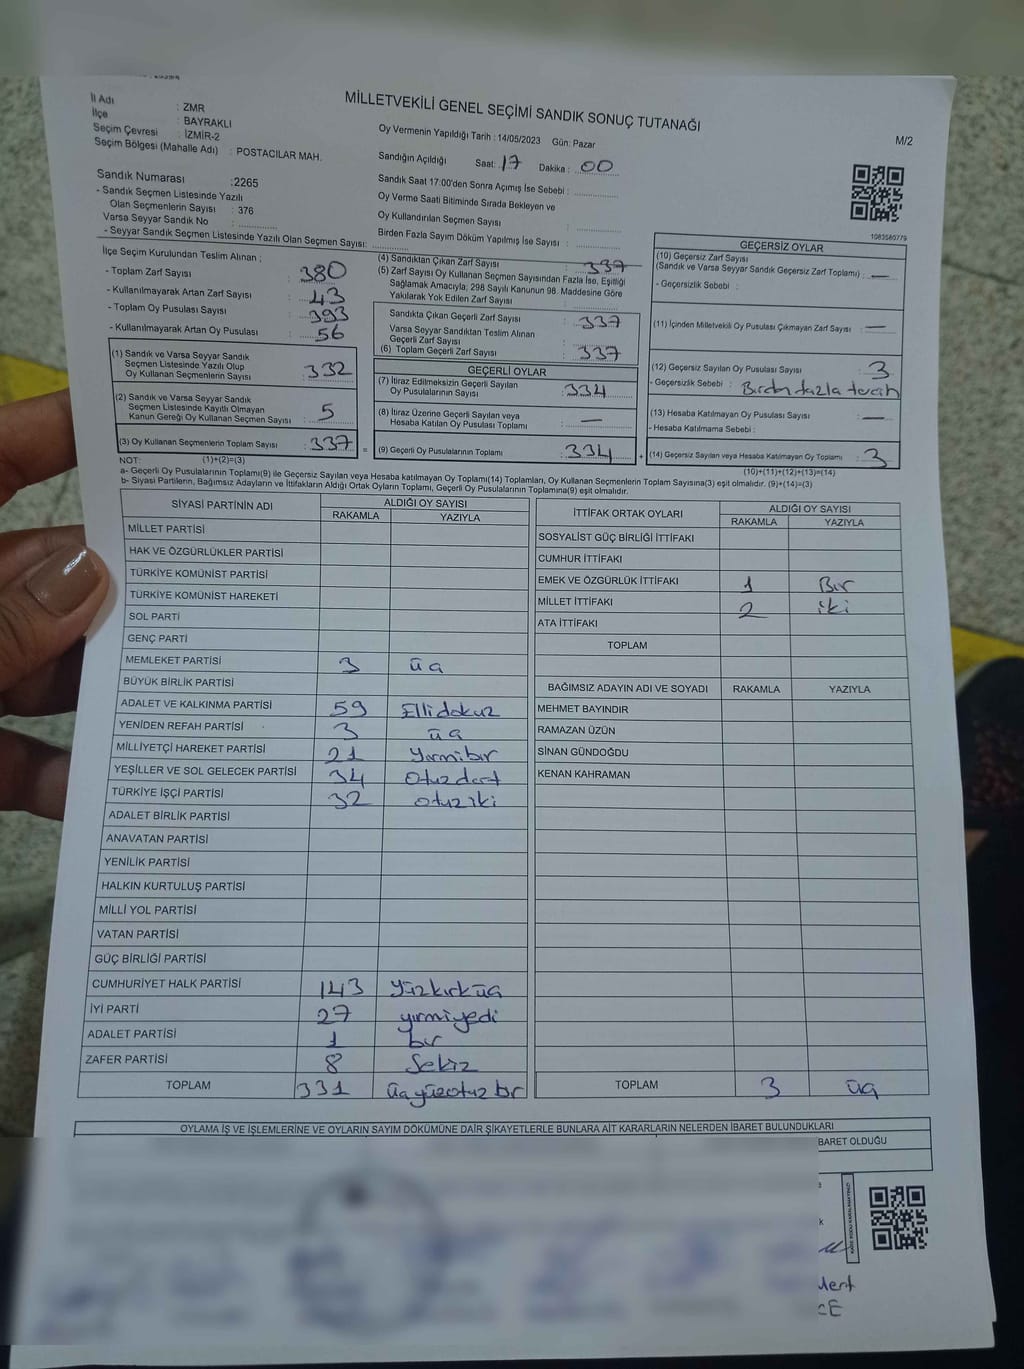 İl Adı : ZMR
İlçe : BAYRAKLI
Seçim Çevresi : İZMİR-2
Seçim Bölgesi (Mahalle Adı) : POSTACILAR MAH.
MİLLETVEKİLİ GENEL SEÇİMİ SANDIK SONUÇ TUTANAĞI
M/2
Oy Vermenin Yapıldığı Tarih : 14/05/2023 Gün: Pazar
Sandığın Açıldığı Saat: 17 Dakika : 00
Sandık Saat 17:00'den Sonra Açımış İse Sebebi :
Oy Verme Saati Bitiminde Sırada Bekleyen ve
Oy Kullandırılan Seçmen Sayısı :
Birden Fazla Sayım Döküm Yapılmış İse Sayısı :
Sandık Numarası : 2265
- Sandık Seçmen Listesinde Yazılı
Olan Seçmenlerin Sayısı : 376
Varsa Seyyar Sandık No :
- Seyyar Sandık Seçmen Listesinde Yazılı Olan Seçmen Sayısı:
İlçe Seçim Kurulundan Teslim Alınan ;
- Toplam Zarf Sayısı : 380
- Kullanılmayarak Artan Zarf Sayısı : 43
- Toplam Oy Pusulası Sayısı : 393
- Kullanılmayarak Artan Oy Pusulası : 56
(1) Sandık ve Varsa Seyyar Sandık
Seçmen Listesinde Yazılı Olup
Oy Kullanan Seçmenlerin Sayısı : 332
(2) Sandık ve Varsa Seyyar Sandık
Seçmen Listesinde Kayıtlı Olmayan
Kanun Gereği Oy Kullanan Seçmen Sayısı : 5
(3) Oy Kullanan Seçmenlerin Toplam Sayısı : 337
(4) Sandıktan Çıkan Zarf Sayısı : 337
(5) Zarf Sayısı Oy Kullanan Seçmen Sayısından Fazla İse, Eşitliği
Sağlamak Amacıyla; 298 Sayılı Kanunun 98. Maddesine Göre
Yakılarak Yok Edilen Zarf Sayısı :
Sandıkta Çıkan Geçerli Zarf Sayısı : 337
Varsa Seyyar Sandıktan Teslim Alınan
Geçerli Zarf Sayısı :
(6) Toplam Geçerli Zarf Sayısı : 337
GEÇERLİ OYLAR
(7) İtiraz Edilmeksizin Geçerli Sayılan
Oy Pusulalarının Sayısı : 334
(8) İtiraz Üzerine Geçerli Sayılan veya
Hesaba Katılan Oy Pusulası Toplamı : —
= (9) Geçerli Oy Pusulalarının Toplamı : 334 +
1983580779
GEÇERSİZ OYLAR
(10) Geçersiz Zarf Sayısı
(Sandık ve Varsa Seyyar Sandık Geçersiz Zarf Toplamı) : —
- Geçersizlik Sebebi :
(11) İçinden Milletvekili Oy Pusulası Çıkmayan Zarf Sayısı : —
(12) Geçersiz Sayılan Oy Pusulası Sayısı : 3
- Geçersizlik Sebebi : Birden fazla tercih
(13) Hesaba Katılmayan Oy Pusulası Sayısı : —
- Hesaba Katılmama Sebebi :
(14) Geçersiz Sayılan veya Hesaba Katılmayan Oy Toplamı : 3
NOT: (1)+(2)=(3) (10)+(11)+(12)+(13)=(14)
a- Geçerli Oy Pusulalarının Toplamı(9) ile Geçersiz Sayılan veya Hesaba katılmayan Oy Toplamı(14) Toplamları, Oy Kullanan Seçmenlerin Toplam Sayısına(3) eşit olmalıdır. (9)+(14)=(3)
b- Siyasi Partilerin, Bağımsız Adayların ve İttifakların Aldığı Ortak Oyların Toplamı, Geçerli Oy Pusulalarının Toplamına(9) eşit olmalıdır.
SİYASİ PARTİNİN ADI ALDIĞI OY SAYISI
RAKAMLA YAZIYLA
MİLLET PARTİSİ
HAK VE ÖZGÜRLÜKLER PARTİSİ
TÜRKİYE KOMÜNİST PARTİSİ
TÜRKİYE KOMÜNİST HAREKETİ
SOL PARTİ
GENÇ PARTİ
MEMLEKET PARTİSİ 3 üç
BÜYÜK BİRLİK PARTİSİ
ADALET VE KALKINMA PARTİSİ 59 Ellidokuz
YENİDEN REFAH PARTİSİ 3 üç
MİLLİYETÇİ HAREKET PARTİSİ 21 Yirmibir
YEŞİLLER VE SOL GELECEK PARTİSİ 34 Otuzdört
TÜRKİYE İŞÇİ PARTİSİ 32 otuziki
ADALET BİRLİK PARTİSİ
ANAVATAN PARTİSİ
YENİLİK PARTİSİ
HALKIN KURTULUŞ PARTİSİ
MİLLİ YOL PARTİSİ
VATAN PARTİSİ
GÜÇ BİRLİĞİ PARTİSİ
CUMHURİYET HALK PARTİSİ 143 Yüzkırküç
İYİ PARTİ 27 yirmiyedi
ADALET PARTİSİ 1 bir
ZAFER PARTİSİ 8 Sekiz
TOPLAM 331 üçyüzotuz bir
İTTİFAK ORTAK OYLARI ALDIĞI OY SAYISI
RAKAMLA YAZIYLA
SOSYALİST GÜÇ BİRLİĞİ İTTİFAKI
CUMHUR İTTİFAKI
EMEK VE ÖZGÜRLÜK İTTİFAKI 1 Bir
MİLLET İTTİFAKI 2 iki
ATA İTTİFAKI
TOPLAM
BAĞIMSIZ ADAYIN ADI VE SOYADI RAKAMLA YAZIYLA
MEHMET BAYINDIR
RAMAZAN ÜZÜN
SİNAN GÜNDOĞDU
KENAN KAHRAMAN
TOPLAM 3 üç
OYLAMA İŞ VE İŞLEMLERİNE VE OYLARIN SAYIM DÖKÜMÜNE DAİR ŞİKAYETLERLE BUNLARA AİT KARARLARIN NELERDEN İBARET BULUNDUKLARI
BARET OLDUĞU